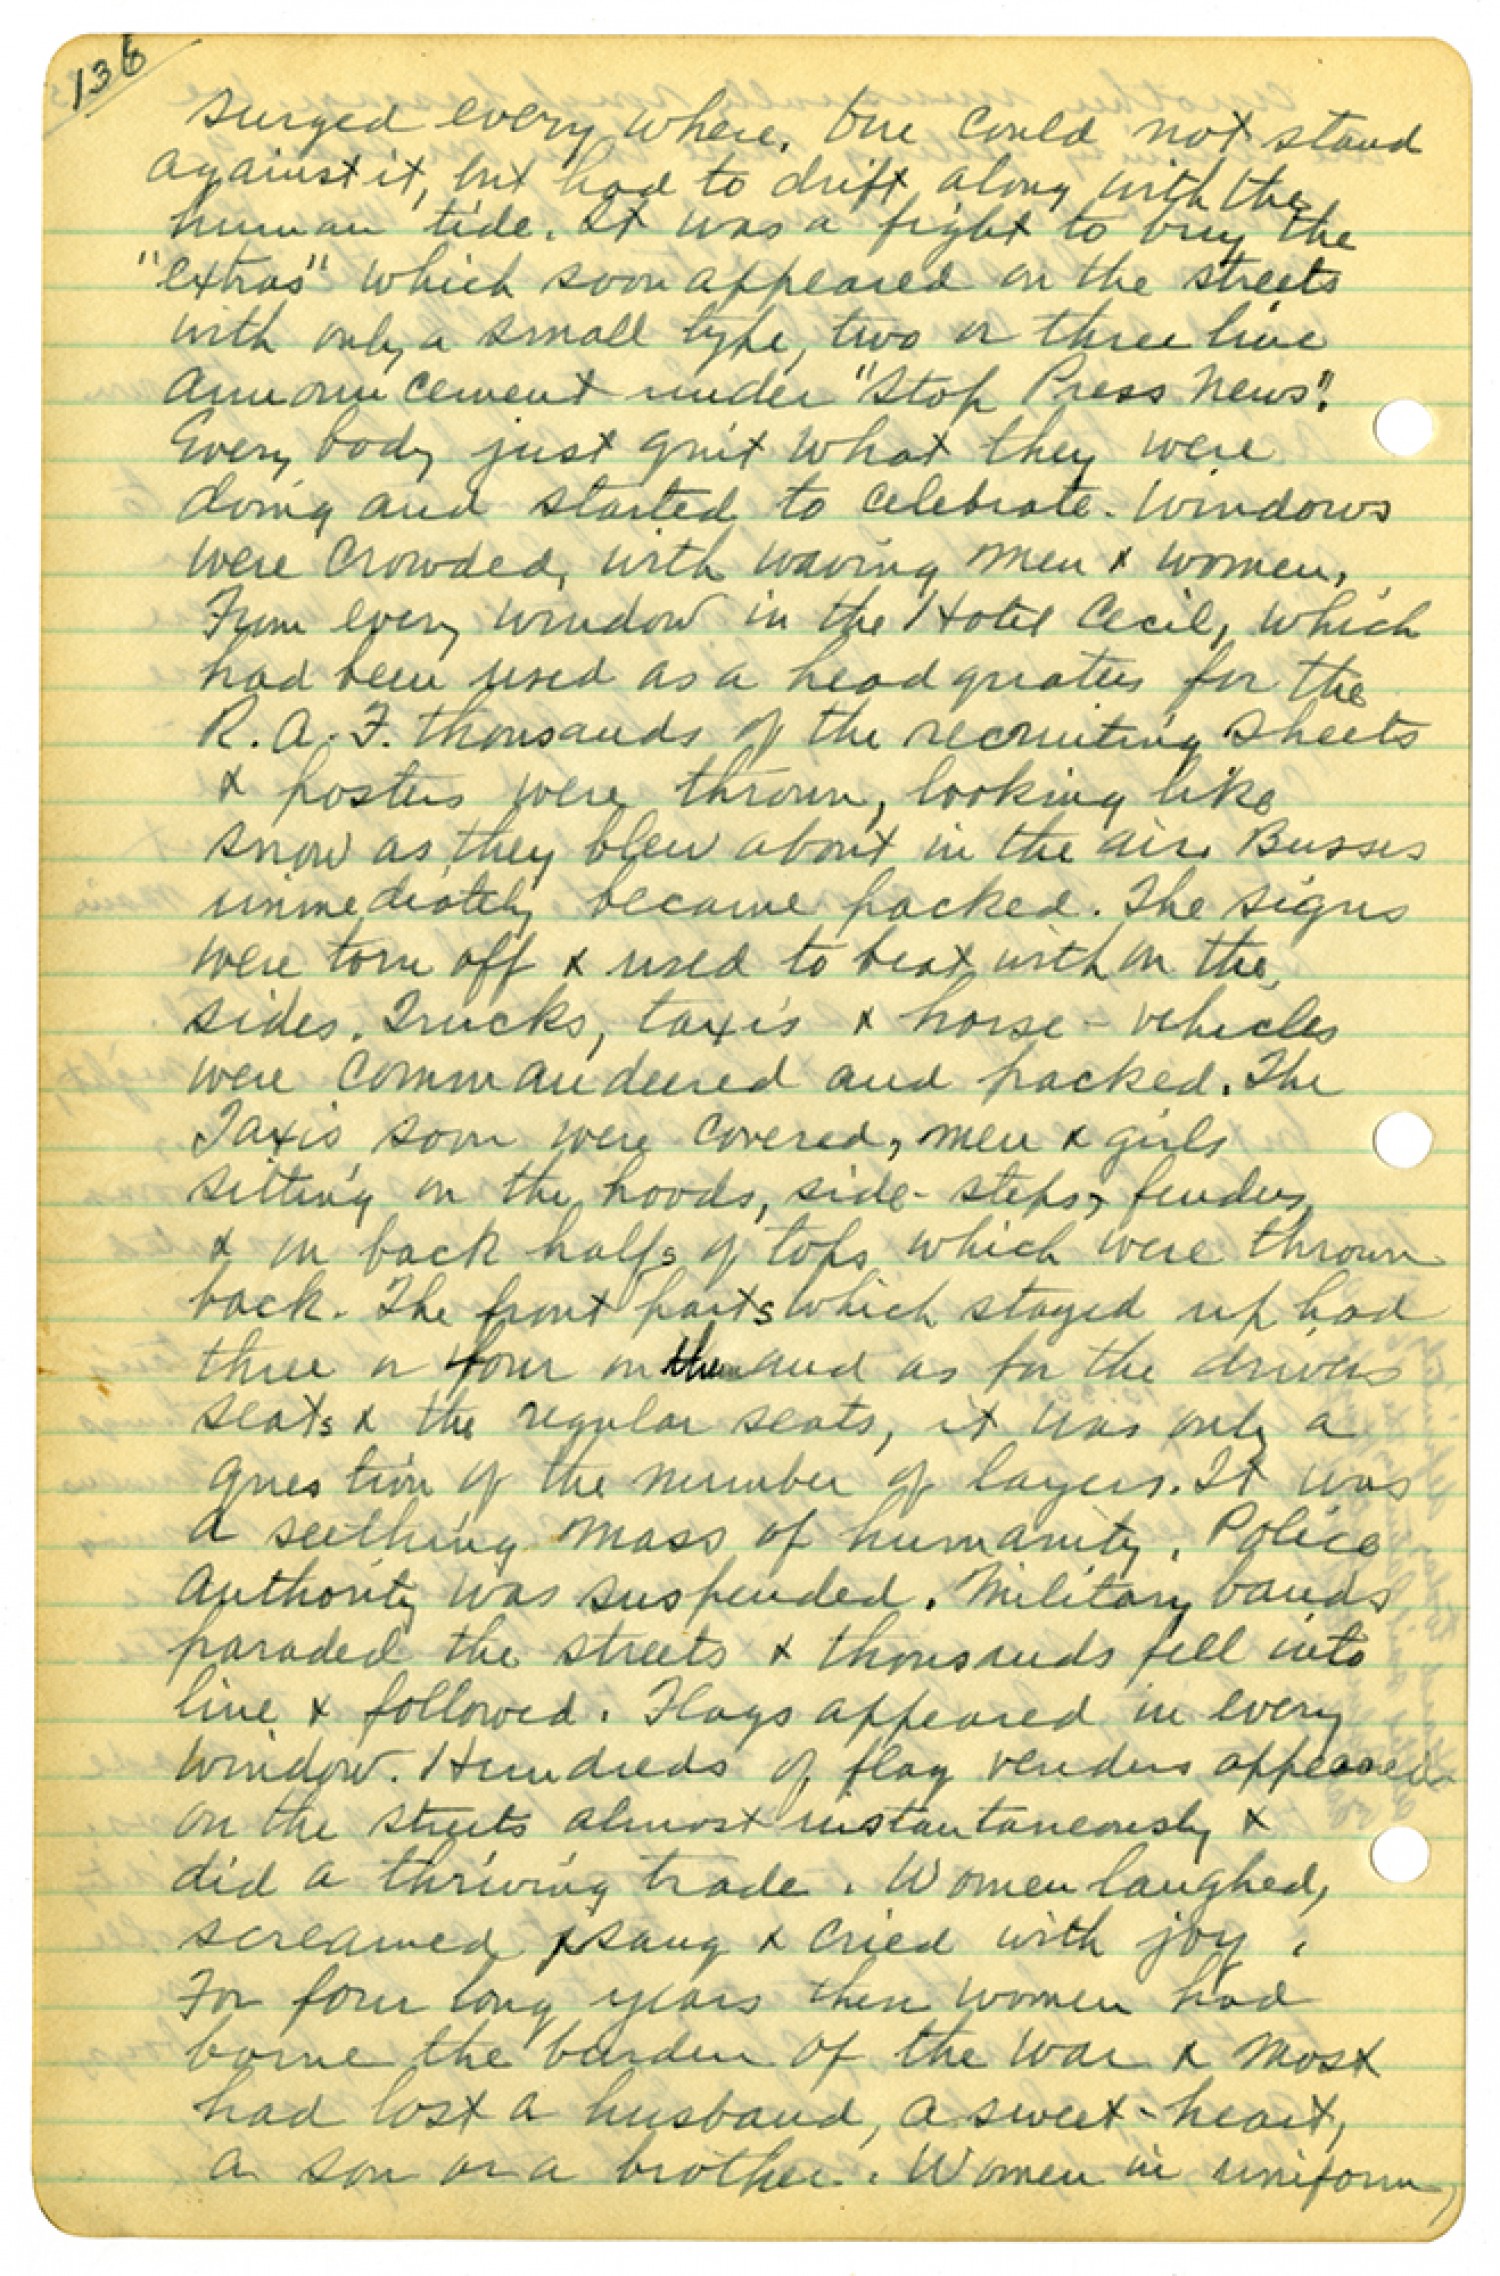 136
surged every where. One could not stand
against it, but had to drift along with the
human tide. It was a fight to buy the
"extras" which soon appeared on the streets
with only a small type, two or three line
announcement under "Stop Press News".
Every body just quit what they were
doing and started to celebrate. Windows
were crowded, with waving men & women.
From every window in the Hotel Cecil, which
had been used as a head quaters for the
R.A.F. thousands of the recruiting sheets
& posters were thrown, looking like
snow as they blew about in the air. Busses
immediately became packed. The signs
were torn off & used to beat with on the
sides. Trucks, taxi's & horse-vehicles
were commandeered and packed. The
Taxis soon were covered, men & girls
sitting on the hoods, side-steps, fenders,
& on back halfs of tops which were thrown
back. The front parts which stayed up had
three or four on them and as for the drivers
seats & the regular seats, it was only a
question of the number of layers. It was
a seething mass of humanity. Police
authority was suspended. Military bands
paraded the streets & thousands fell into
line & followed. Flags appeared in every
window. Hundreds of flag venders appeared
on the streets almost instantaneously &
did a thriving trade. Women laughed,
screamed, sang & cried with joy.
For four long years these women had
borne the burden of the war & most
had lost a husband, a sweet-heart,
a son or a brother. Women in uniform,